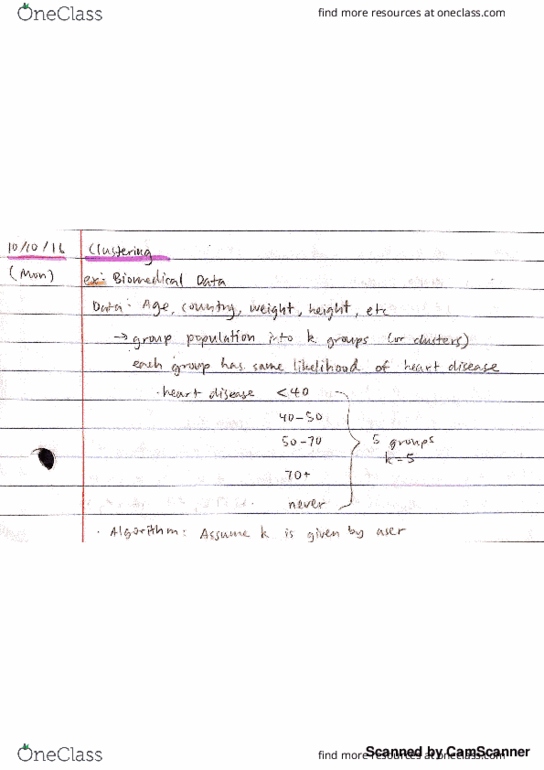 OneClass
find more resources at oneclass.com
10/10/16 Clustering
(Mon) ex: Biomedical Data
Data: Age, country, weight, height, etc
→ group population into k groups (or clusters)
each group has same likelihood of heart disease
· heart disease <40
40-50
50-70 5 groups
k=5
70+
never
· Algorithm: Assume k is given by user
OneClass
find more resources at oneclass.com
Scanned by CamScanner